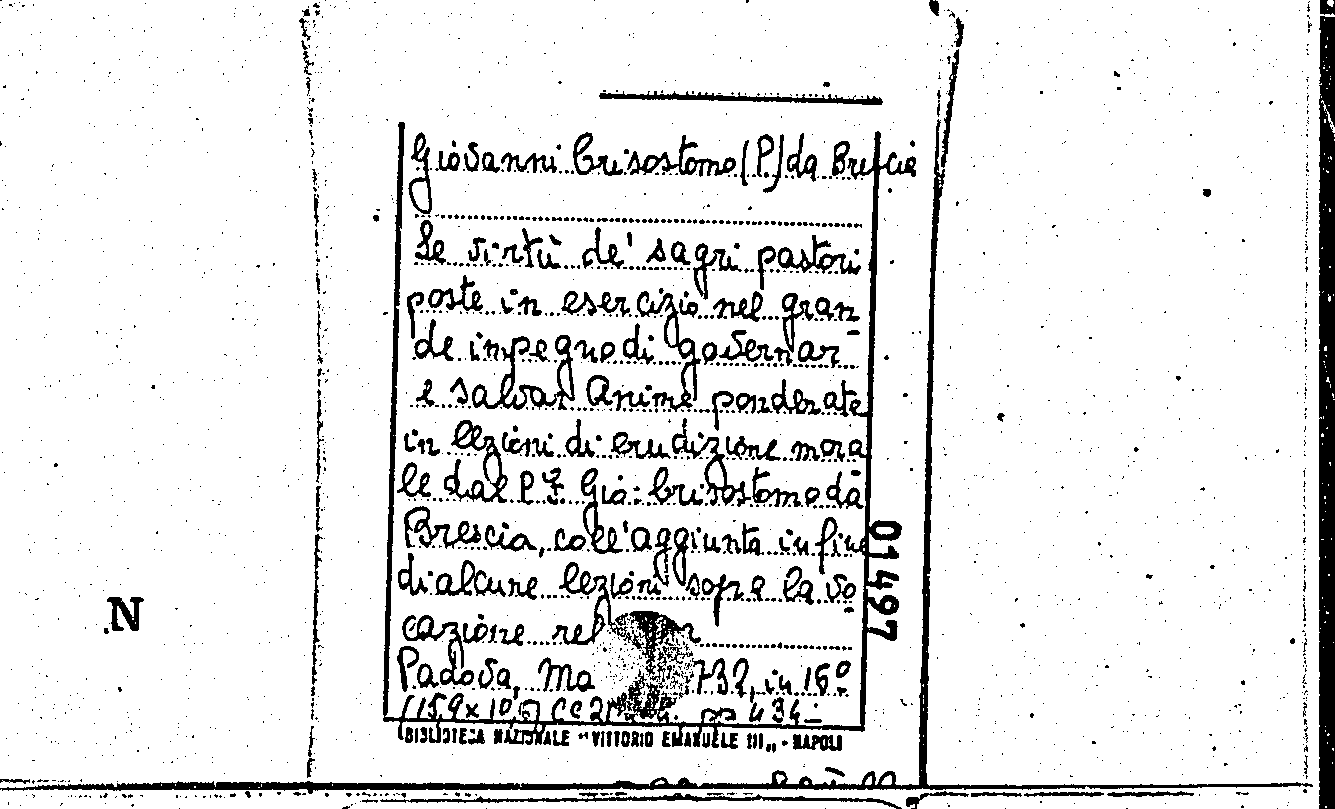 Giovanni Crisostomo (P.) da Brescia
Le virtù de' sagri pastori
poste in esercizio nel gran
de impegno di governar
e salvar Anime ponderate
in lezioni di erudizione mora
le dal P. F. Gio: Crisostomo da
Brescia, coll'aggiunta in fine
di alcune lezioni sopra la vo
cazione rel
Padova, Ma 1732, in 16°
(15,9 x 10,6) cc 2 pp 434 -
BIBLIOTECA NAZIONALE "VITTORIO EMANUELE III" - NAPOLI
01497
N